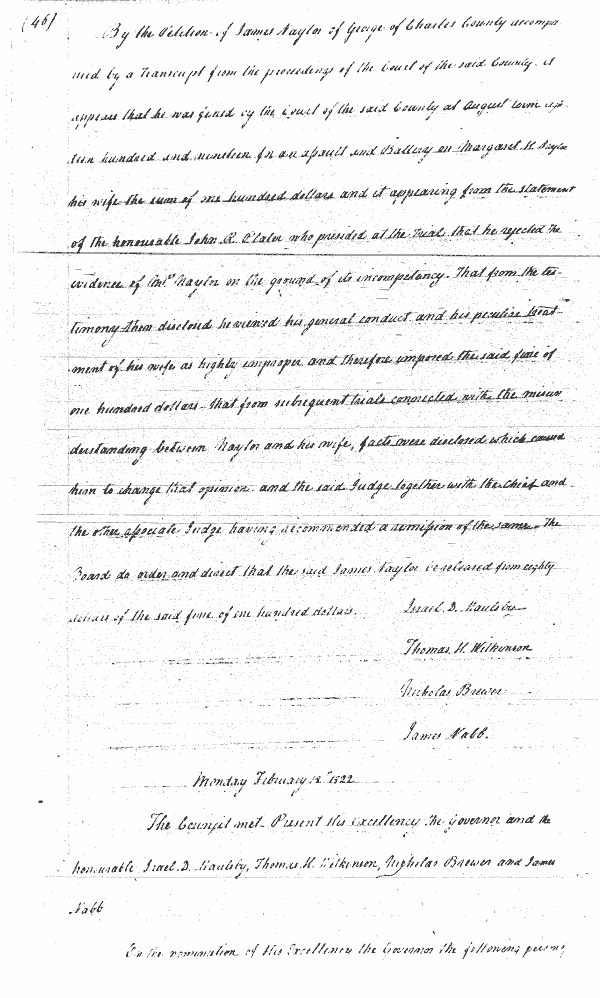 (46)
By the Petition of James Naylor of George of Charles County accompa
nied by a Transcript from the proceedings of the Court of the said County. it
appears that he was fined by the Court of the said County at August term eigh
teen hundred and nineteen for an assault and Battery on Margaret H. Naylor
his wife the sum of one hundred dollars and it appearing from the statement
of the honourable John R. Plater who presided at the Trial that he rejected the
evidence of Naylor on the ground of its incompetency. That from the tes-
timony then disclosed he viewed his general conduct and his peculiar treat-
ment of his wife as highly improper and therefore imposed the said fine of
one hundred dollars - that from subsequent trials connected with the misun
derstanding between Naylor and his wife, facts were disclosed which caused
him to change that opinion. and the said Judge together with the Chief and
the other associate Judge having recommended a remission of the same. The
Board do order and direct that the said James Naylor be released from eighty
dollars of the said fine of one hundred dollars.
Israel D. Maulsby
Thomas H. Wilkinson
Nicholas Brewer
James Nabb.
Monday February 1822
The Council met Present His Excellency the Governor and the
honourable Israel D. Maulsby, Thomas H. Wilkinson, Nicholas Brewer and James
Nabb
On the nomination of His Excellency the Governor the following persons